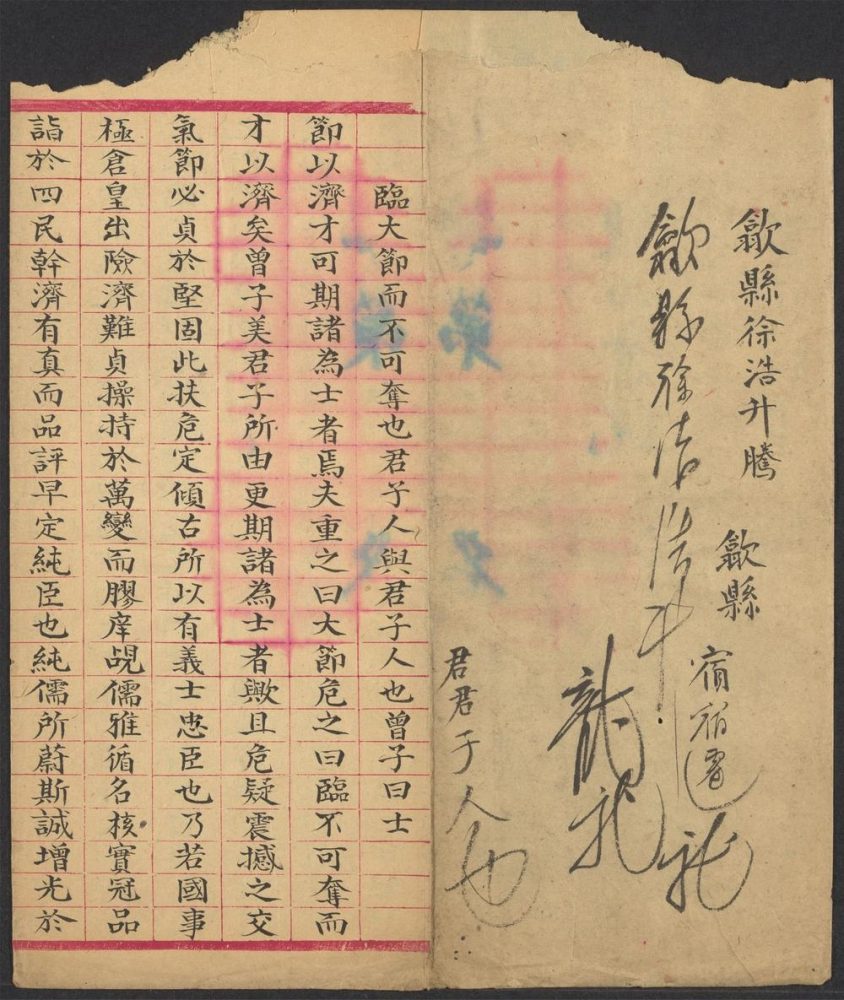 歙縣徐浩升騰
歙縣
歙縣徐浩浩升
宿宿
龍
君君子人也
臨大節而不可奪也君子人與君子人也曾子曰士
節以濟才可期諸為士者焉夫重之曰大節危之曰臨不可奪而
才以濟矣曾子美君子所由更期諸為士者歟且危疑震撼之交
氣節必貞於堅固此扶危定傾古所以有義士忠臣也乃若國事
極倉皇出險濟難貞操持於萬變而膠庠覘儒雅循名核實冠品
詣於四民幹濟有真而品評早定純臣也純儒所蔚斯誠增光於